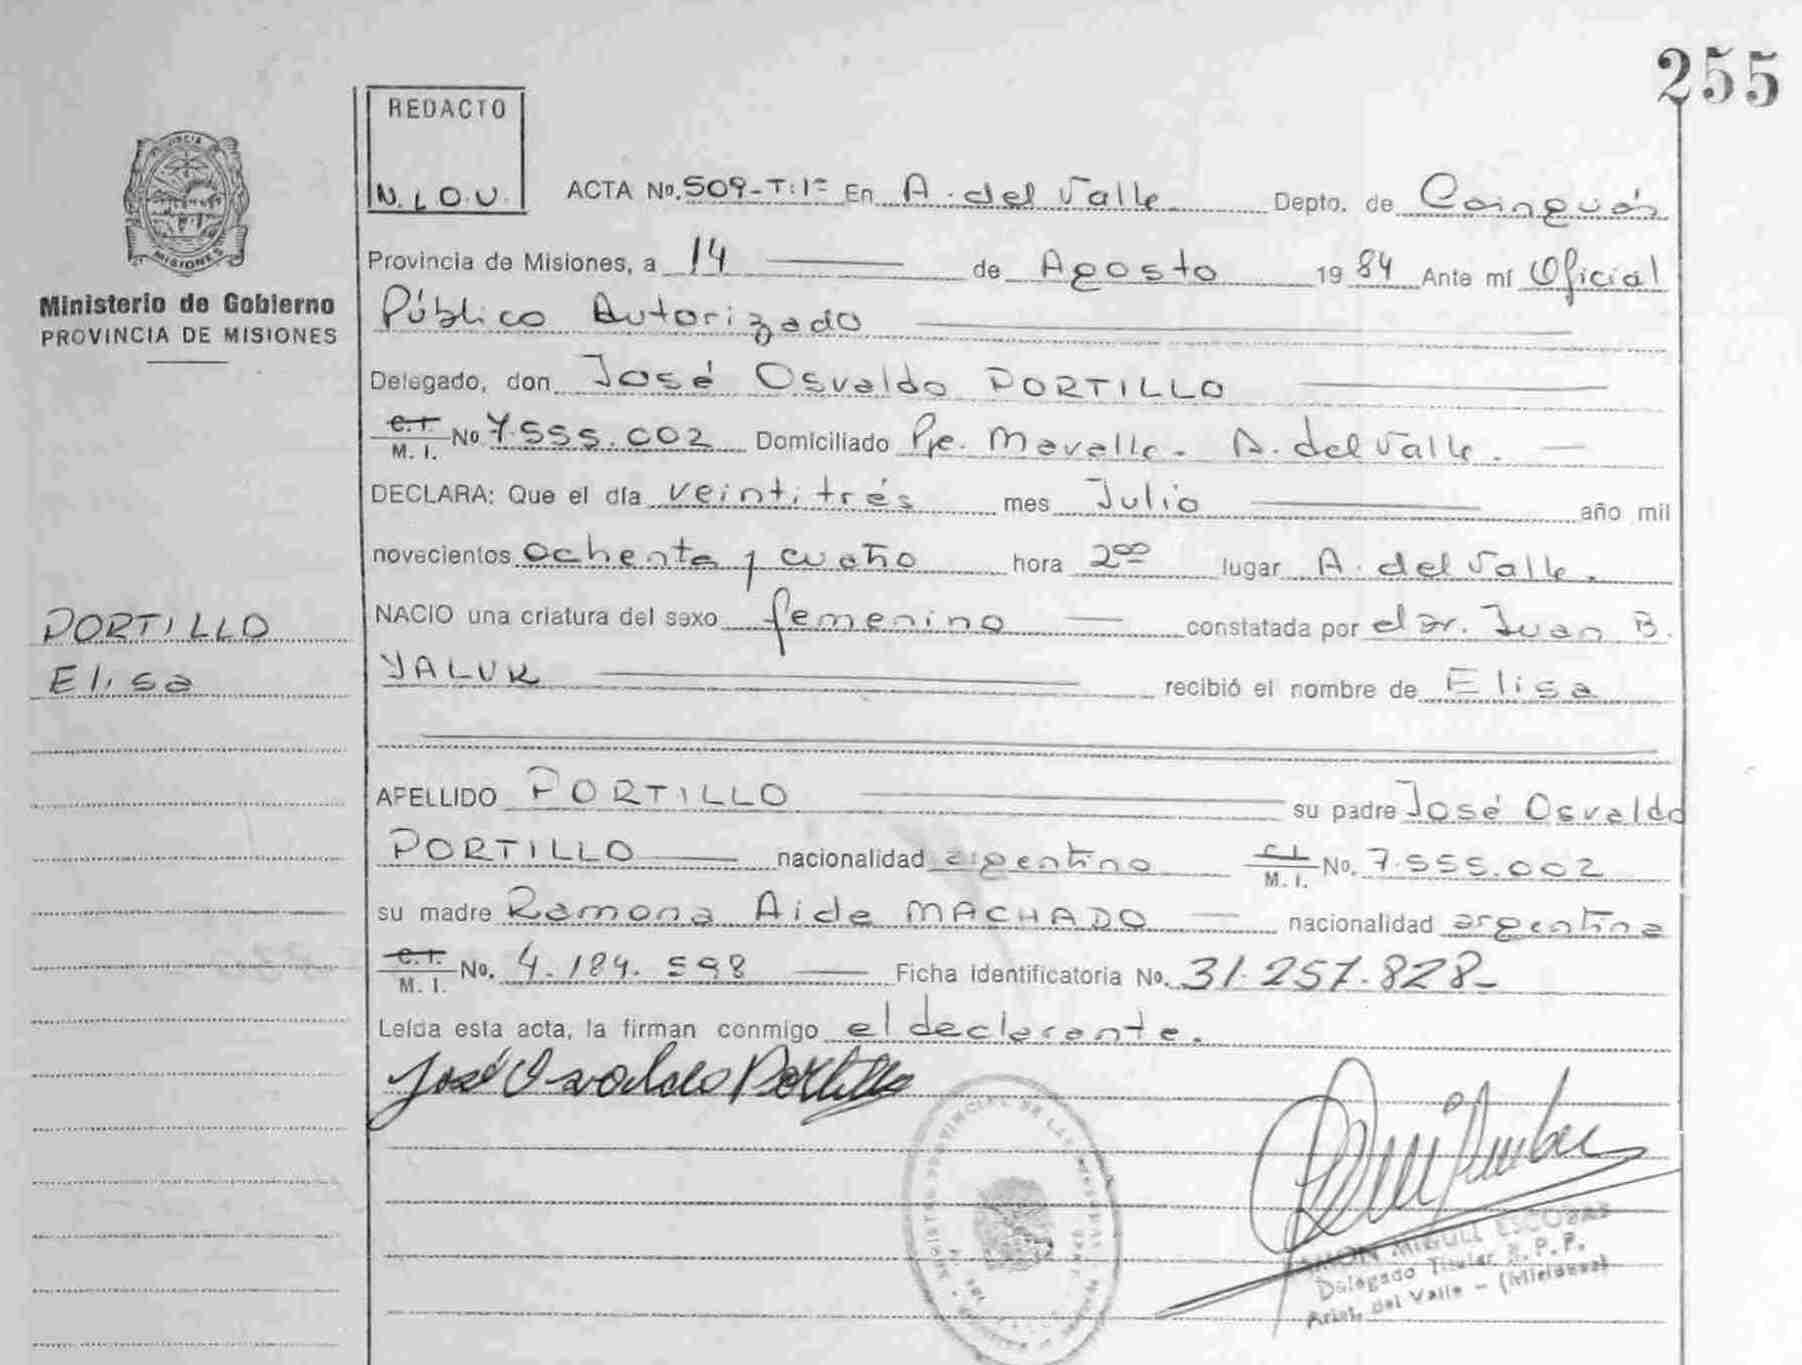 255
REDACTO
N.L.O.V.
ACTA No. 509-T:1= En A. del Valle Depto. de Cainguás
Provincia de Misiones, a 14 de Agosto 1984 Ante mí Oficial
Público Autorizado
Delegado, don José Osvaldo PORTILLO
C.I. M.I. No 7.555.002 Domiciliado Pje. Mavalle - A. del Valle.
DECLARA: Que el día veintitrés mes Julio año mil
novecientos ochenta y cuatro hora 2⁰⁰ lugar A. del Valle.
NACIO una criatura del sexo femenino constatada por el Dr. Juan B.
YALUK recibió el nombre de Elisa
APELLIDO PORTILLO su padre José Osvaldo
PORTILLO nacionalidad argentino C.I. M.I. No. 7.555.002
su madre Ramona Aide MACHADO nacionalidad argentina
C.I. M.I. No. 4.184.598 Ficha Identificatoria No. 31.257.828-
Leída esta acta, la firman conmigo el declarante.
José Osvaldo Portillo
MIGUEL ESCOBAR
Delegado Titular R.P.P.
Arist. del Valle - (Misiones)
PROVINCIA DE
MISIONES
Ministerio de Gobierno
PROVINCIA DE MISIONES
PORTILLO
Elisa